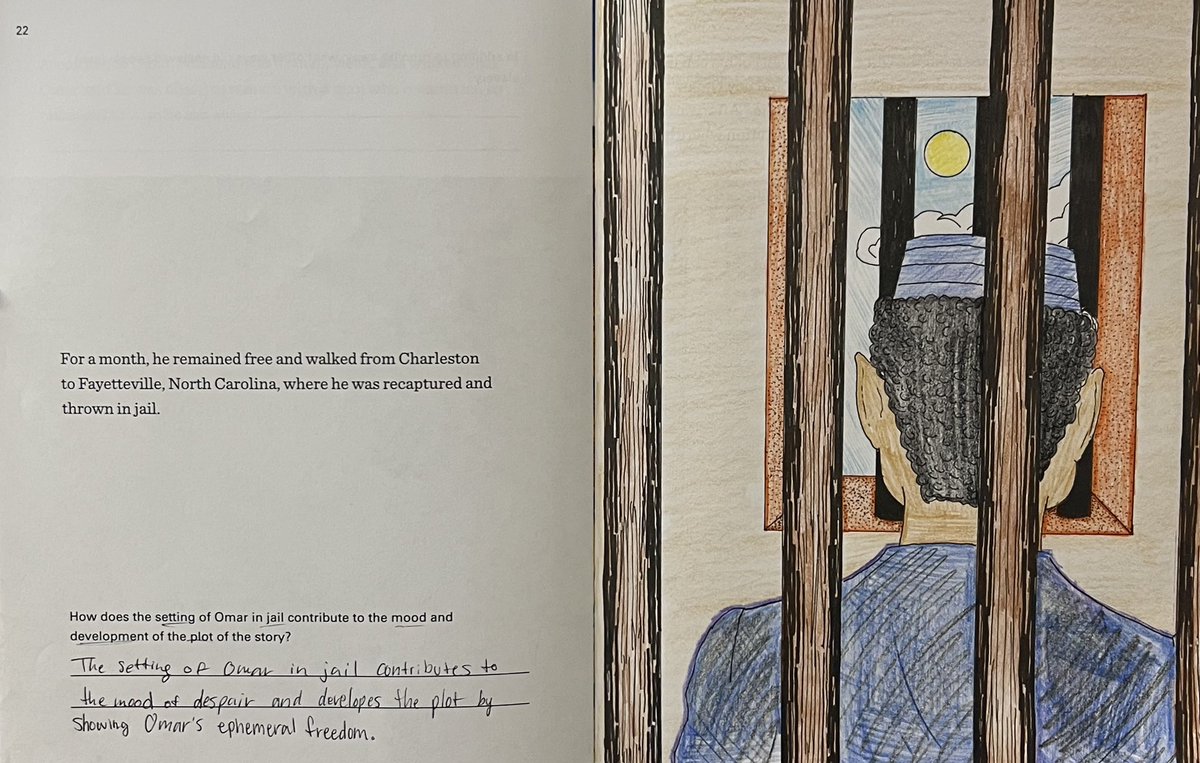 22
For a month, he remained free and walked from Charleston
to Fayetteville, North Carolina, where he was recaptured and
thrown in jail.
How does the setting of Omar in jail contribute to the mood and
development of the plot of the story?
The setting of Omar in jail contributes to
the mood of despair and developes the plot by
showing Omar's ephemeral freedom.